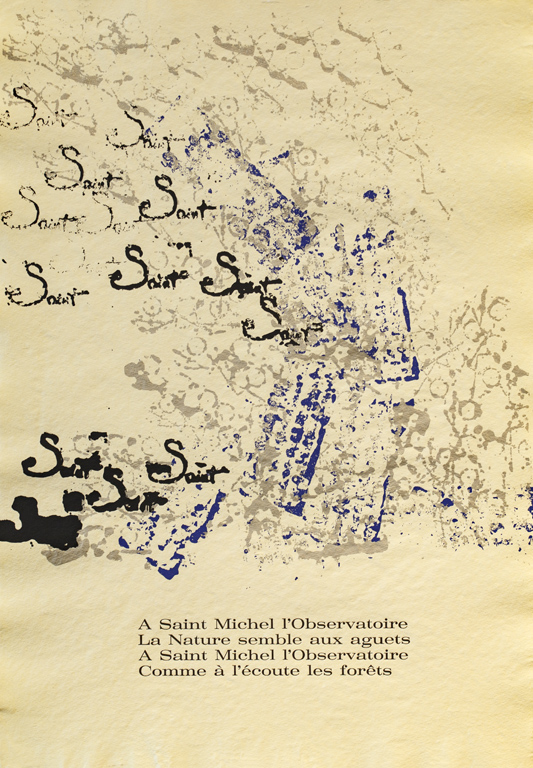 Saint
Saint
Saint
Saint
Saint
Saint
Saint
Saint
Saint
Saint
Saint
Saint
A Saint Michel l'Observatoire
La Nature semble aux aguets
A Saint Michel l'Observatoire
Comme à l'écoute les forêts